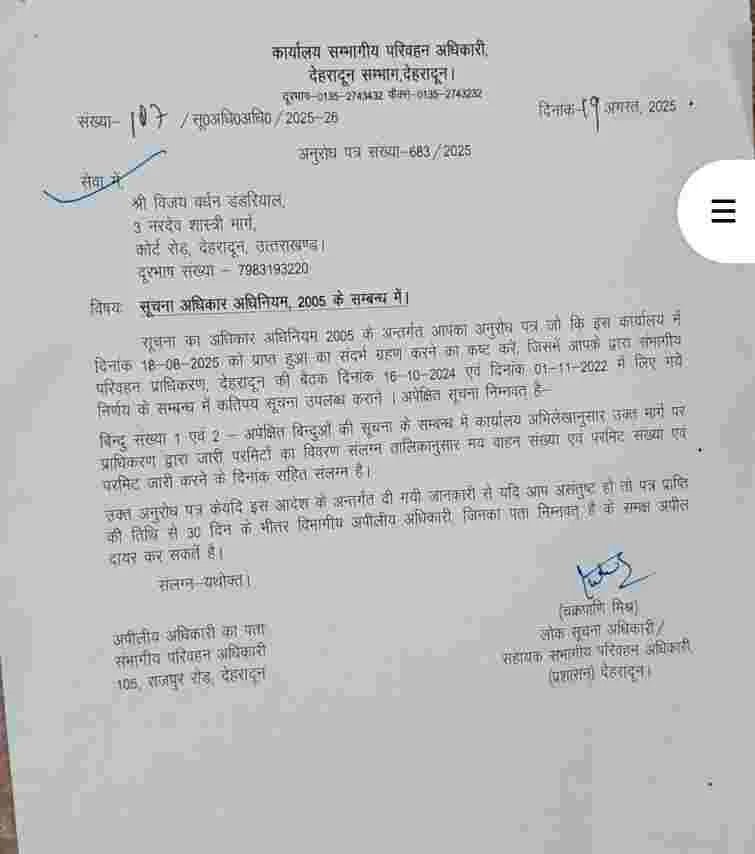 कार्यालय सम्भागीय परिवहन अधिकारी,
देहरादून सम्भाग,देहरादून।
दूरभाष-0135-2743432 फैक्स-0135-2743232
संख्या- 107 /सू0अधि0अधि0/2025-26
दिनांक-19 अगस्त, 2025
अनुरोध पत्र संख्या-683/2025
सेवा में,
श्री विजय वर्धन डंडरियाल,
3 नरदेव शास्त्री मार्ग,
कोर्ट रोड़, देहरादून, उत्तराखण्ड।
दूरभाष संख्या – 7983193220
विषयः सूचना अधिकार अधिनियम, 2005 के सम्बन्ध में।
सूचना का अधिकार अधिनियम 2005 के अन्तर्गत आपका अनुरोध पत्र जो कि इस कार्यालय में
दिनांक 18-08-2025 को प्राप्त हुआ का संदर्भ ग्रहण करने का कष्ट करें, जिसमें आपके द्वारा संभागीय
परिवहन प्राधिकरण, देहरादून की बैठक दिनांक 16-10-2024 एवं दिनांक 01-11-2022 में लिए गये
निर्णय के सम्बन्ध में कतिपय सूचना उपलब्ध कराने । अपेक्षित सूचना निम्नवत् है:-
बिन्दु संख्या 1 एवं 2 – अपेक्षित बिन्दुओं की सूचना के सम्बन्ध में कार्यालय अभिलेखानुसार उक्त मार्ग पर
प्राधिकरण द्वारा जारी परमिटों का विवरण संलग्न तालिकानुसार मय वाहन संख्या एवं परमिट संख्या एवं
परमिट जारी करने के दिनांक सहित संलग्न है।
उक्त अनुरोध पत्र केयदि इस आदेश के अन्तर्गत दी गयी जानकारी से यदि आप असंतुष्ट हो तो पत्र प्राप्ति
की तिथि से 30 दिन के भीतर विभागीय अपीलीय अधिकारी, जिनका पता निम्नवत् है के समक्ष अपील
दायर कर सकतें है।
संलग्न-यथोक्त।
(चक्रपाणि मिश्र)
लोक सूचना अधिकारी/
सहायक सभागीय परिवहन अधिकारी,
(प्रशासन) देहरादून।
अपीलीय अधिकारी का पता
सभागीय परिवहन अधिकारी
105, राजपुर रोड़, देहरादून